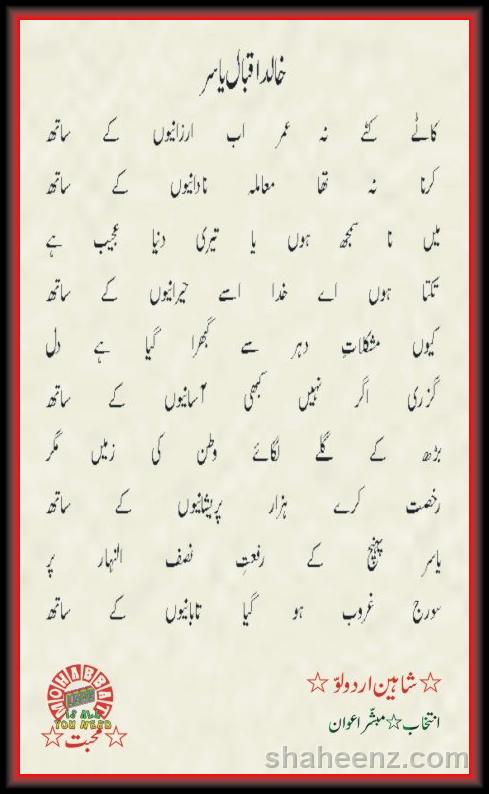 خالد اقبال یاسر
کاٹے کٹے نہ عمر اب ارزانیوں کے ساتھ
کرنا نہ تھا معاملہ نادانیوں کے ساتھ
میں نا سمجھ ہوں یا تیری دنیا عجیب ہے
تکتا ہوں اے خدا اسے حیرانیوں کے ساتھ
کیوں مشکلاتِ دہر سے گھبرا گیا ہے دل
گزری اگر نہیں کبھی آسانیوں کے ساتھ
بڑھ کے گلے لگائے وطن کی زمیں مگر
رخصت کرے ہزار پریشانیوں کے ساتھ
یاسر پہنچ کے رفعتِ نصف النہار پر
سورج غروب ہو گیا تابانیوں کے ساتھ
☆ شاہین اردو لوّ ☆
انتخاب ☆ مبشّر اعوان
MOHABBAT
IS ALL
YOU NEED
☆ محبت ☆
shaheenz.com